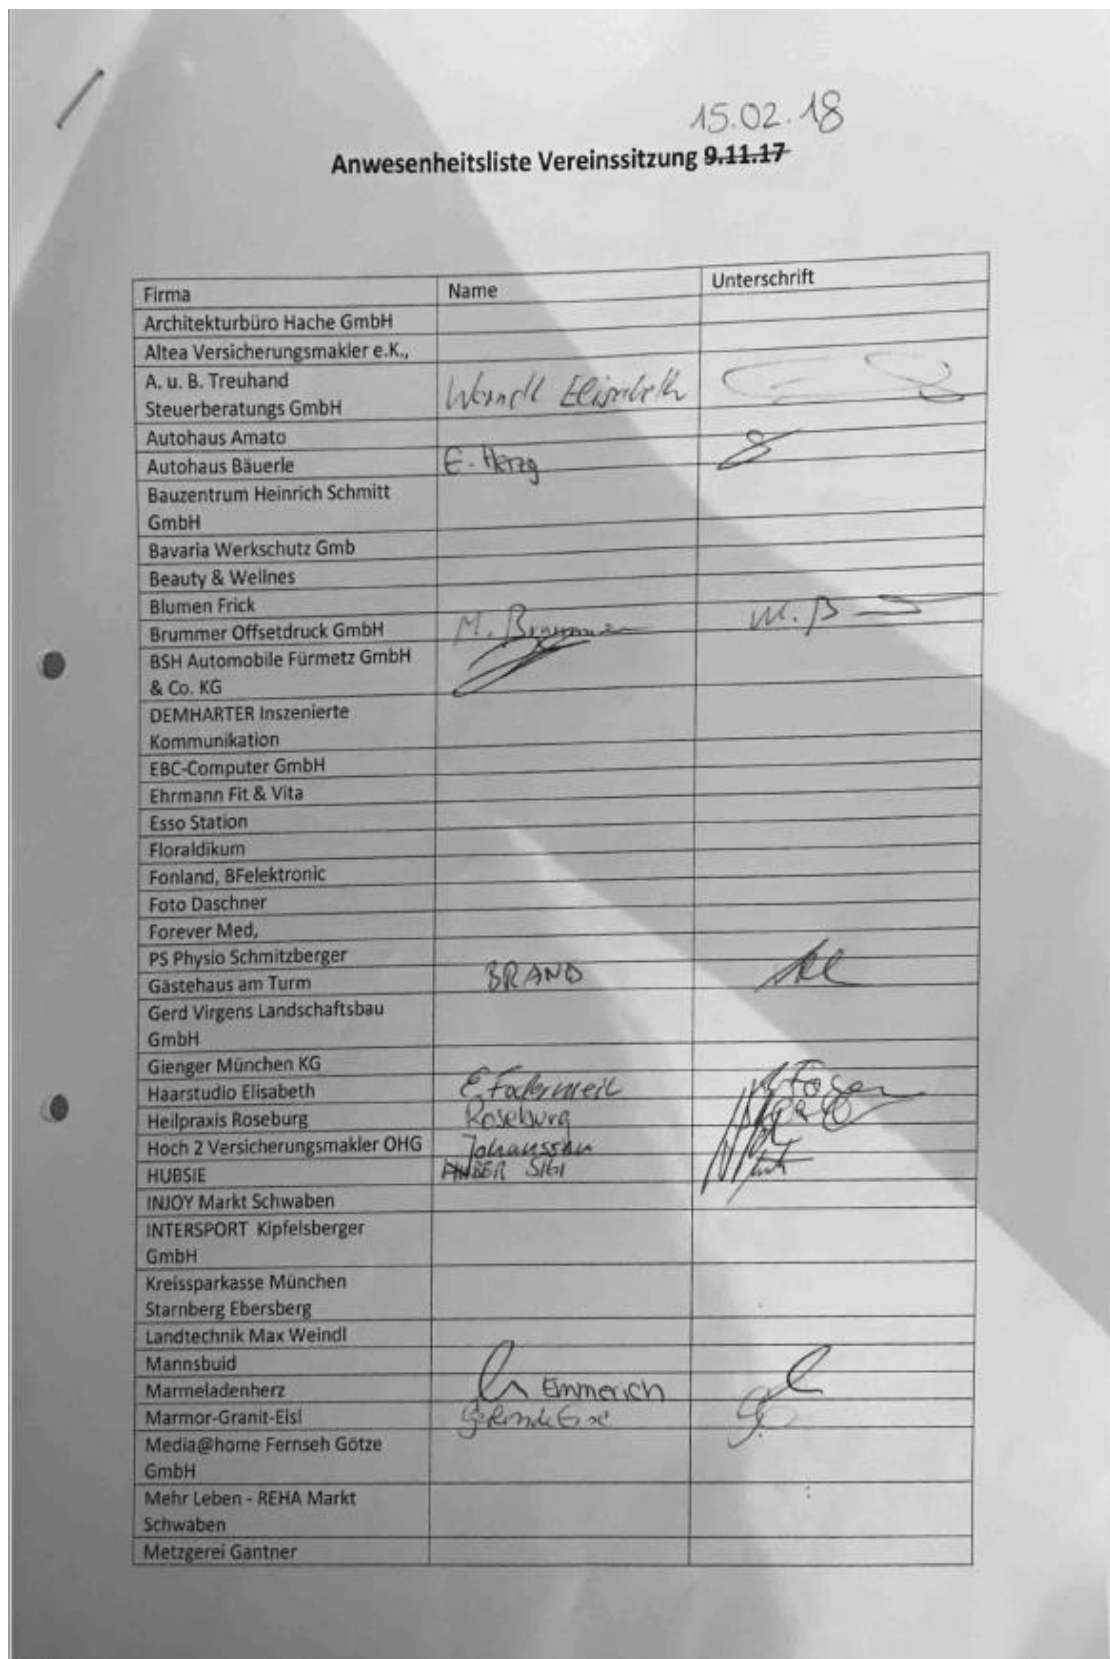 15.02.18
Anwesenheitsliste Vereinssitzung 9.11.17
Firma Name Unterschrift
Architekturbüro Hache GmbH
Altea Versicherungsmakler e.K.,
A. u. B. Treuhand
Steuerberatungs GmbH Elisabeth
Autohaus Amato
Autohaus Bäuerle E. Herzg
Bauzentrum Heinrich Schmitt
GmbH
Bavaria Werkschutz Gmb
Beauty & Wellnes
Blumen Frick
Brummer Offsetdruck GmbH M. Brummer M. B
BSH Automobile Fürmetz GmbH
& Co. KG
DEMHARTER Inszenierte
Kommunikation
EBC-Computer GmbH
Ehrmann Fit & Vita
Esso Station
Floraldikum
Fonland, BFelektronic
Foto Daschner
Forever Med,
PS Physio Schmitzberger
Gästehaus am Turm BRAND
Gerd Virgens Landschaftsbau
GmbH
Gienger München KG
Haarstudio Elisabeth E.
Heilpraxis Roseburg Roseburg
Hoch 2 Versicherungsmakler OHG Johannsson
HUBSIE SIGI
INJOY Markt Schwaben
INTERSPORT Kipfelsberger
GmbH
Kreissparkasse München
Starnberg Ebersberg
Landtechnik Max Weindl
Mannsbuid
Marmeladenherz Emmerich
Marmor-Granit-Eisl
Media@home Fernseh Götze
GmbH
Mehr Leben - REHA Markt
Schwaben
Metzgerei Gantner